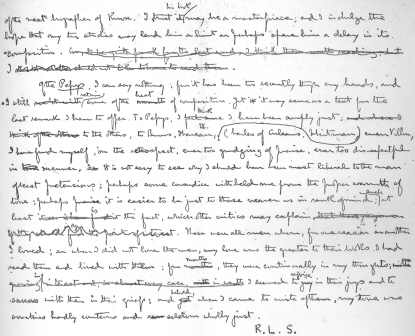 of the next biographer of Knox. I trust his book may be a masterpiece; and I indulge the
hope that my two studies may lend him a hint or perhaps spare him a delay in its
composition.
Of the Pepys I can say nothing; for it has been too recently through my hands, and
I still retain some of the heat of composition. Yet it may serve as a text for the
last remark I have to offer. To Pepys, I think I have been amply just;
to the others, to Burns, Thoreau, (Charles of Orleans, Whitman) even Villon,
I have found myself, in the retrospect, ever too grudging of praise, ever too disrespectful
in manner. It is not easy to see why I should have been most liberal to the man
of least pretensions; perhaps some cowardice withheld me from the proper warmth of
tone; perhaps it is easier to be just to those nearer us in rank of mind. Such at
least is the fact, which other critics may explain.
These were all men whom, for one reason or another
I loved; or when I did not love the men, my love was the greater to their books. I had
read them and lived with them; for months they were continually in my thoughts;
I seemed to rejoice in their joys and to
sorrow with them in their griefs; and behold when I came to write of them, my tone was
sometimes hardly courteous and seldom wholly just.
R. L. S.